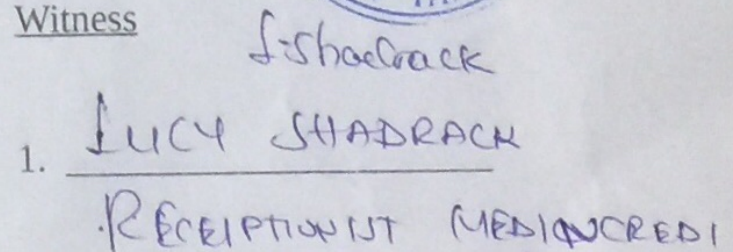 Witness
L. Shadrack
1. LUCY SHADRACK
RECEIPTIONIST MEDIONCREDI